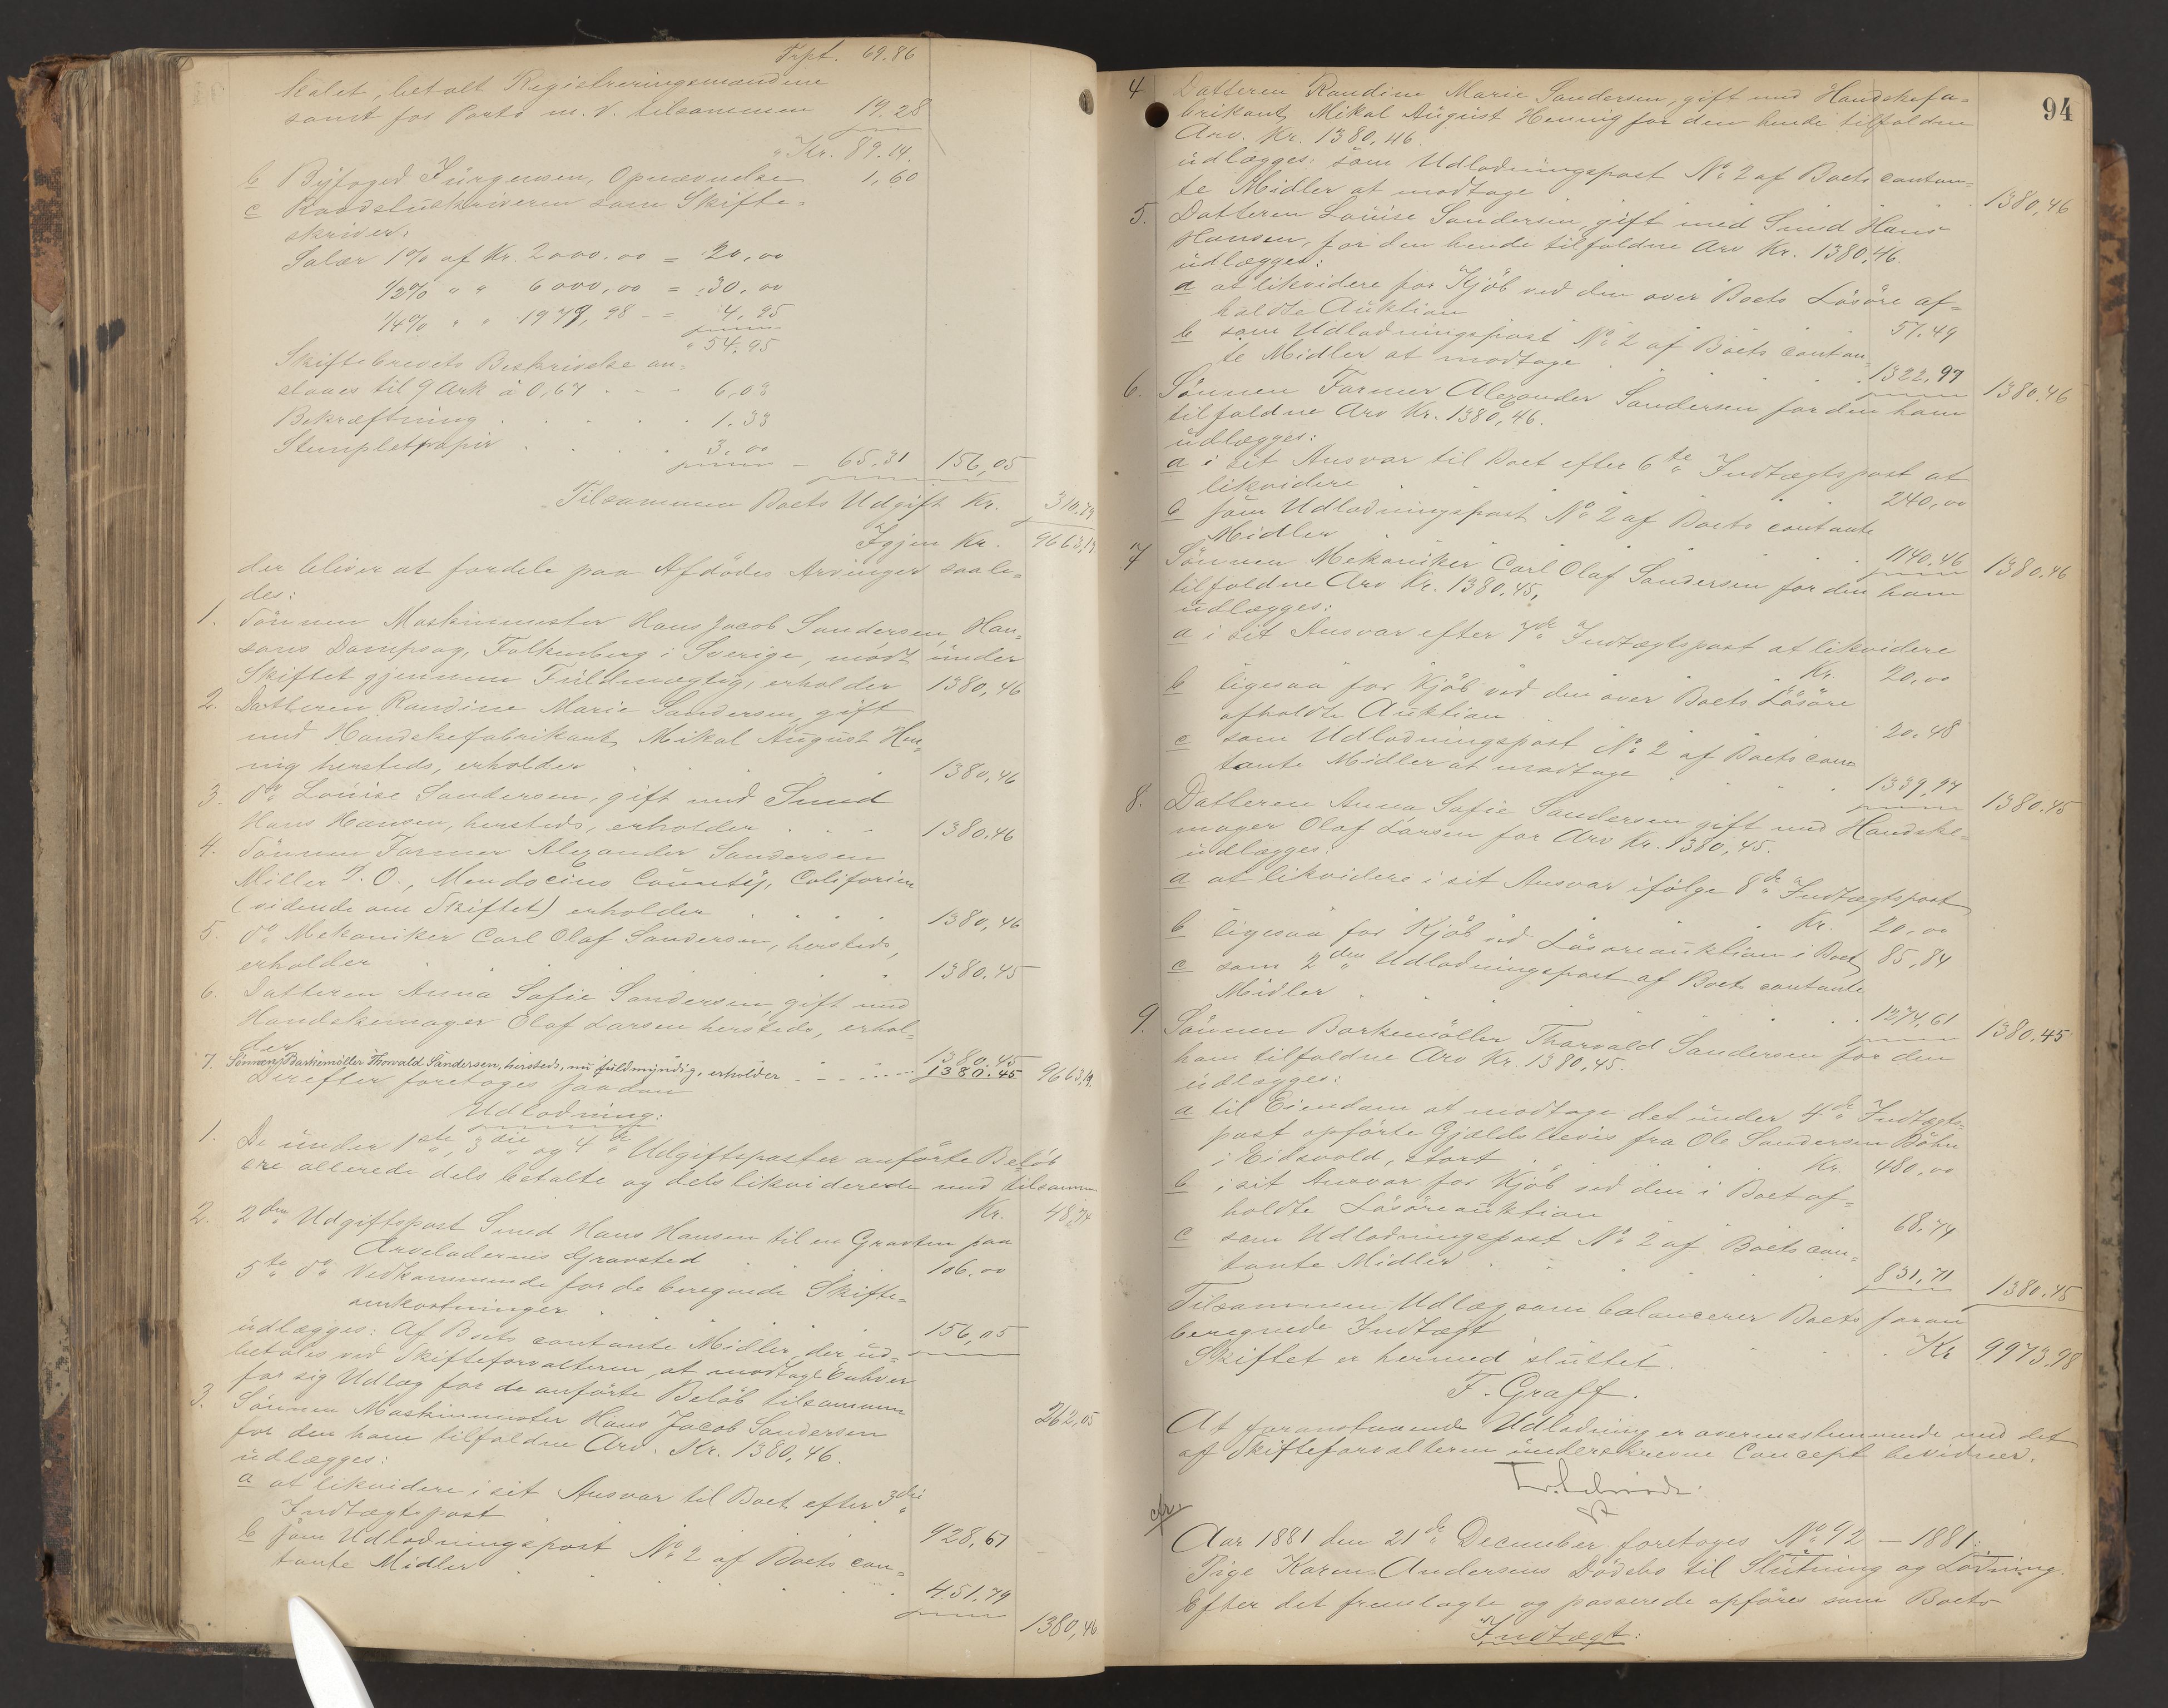 Trpt. 69.86
kalet, betalt Registreringsmændene
samt for Porto m. V. tilsammen 19.28
" Kr. 89.14.
b Byfoged Jürgensen, Opnævnelse 1,60
c Raadstueskriveren som Skifte=
skriver:
Salær 1% af Kr. 2000.00 = 20,00
1/2% " " 6000,00 = 30,00
1/4% " " 1979,98 - = 4,95
" 54,95
Skiftebrevets Beskrivelse an=
slaaes til 9 Ark à 0,67 . - - 6,03
Bekræftning . . . . . 1.33
Stempletpapir . . . . 3,00
- 65,31 156,05
Tilsammen Boets Udgift Kr. 310.79
Igjen Kr. 9663,19
der bliver at fordele paa Afdødes Arvinger saale=
des:
1. Sönnen Maskinmester Hans Jacob Sandersen, Han=
sons Dampsag, Falkenberg i Sverige, mödt under
Skiftet gjennem Fuldmægtig, erholder 1380,46
2. Datteren Randine Marie Sandersen, gift
med Handskefabrikant Mikal August Hen=
nig hersteds, erholder . . . 1380,46
3. do Louise Sandersen, gift med Smed
Hans Hansen, hersteds, erholder . . . 1380.46
4. Sönnen Farmer Alexander Sandersen
Miller P. O., Mendocino County, Californien
(vidende om Skiftet) erholder . . . . 1380,46
5. do Mekaniker Carl Olaf Sandersen, hersteds,
erholder . . . . . 1380.45
6. Datteren Anna Sofie Sandersen, gift med
Handskemager Olaf Larsen hersteds, erhol=
der 1380.45
7. Sönnen Barkemöller Thorvald Sandersen, hersteds, nu fuldmyndig, erholder - - - - - - 1380.45 9663,19.
Derefter foretages saadan
Udlodning:
1. De under 1ste, 3die og 4de Udgiftsposter anförte Belöb
ere allerede dels betalte og dels likviderede med tilsammen
Kr. 48,74
2. 2den Udgiftspost Smed Hans Hansen til en Gravsten paa
Arveladernes Gravsted . . . 106.00
5te do Vedkommende for de beregnede Skifte=
omkostninger . . . . 156,05
udlægges: Af Boets contante Midler, der ud=
betales ved Skifteforvalteren, at modtage Enhver
for sig Udlæg for de anförte Belöb tilsammen 262,05
3. Sönnen Maskinmester Hans Jacob Sandersen
for den ham tilfaldne Arv. Kr. 1380,46.
udlægges:
a at likvidere i sit Ansvar til Boet efter 3die
Indtægtspost 928,67
b som Udlodningspost No 2 af Boets con=
tante Midler . . . . . . 451,79
1380,46
94
4 Datteren Randine Marie Sandersen, gift med Handskefa=
brikant Mikal August Hennig for den hende tilfaldne
Arv. Kr. 1380,46.
udlægges: som Udlodningspost No 2 af Boets contan=
te Midler at modtage . . . . . 1380,46
5. Datteren Louise Sandersen, gift med Smed Hans
Hansen, for den hende tilfaldne Arv Kr. 1380,46.
udlægges:
a at likvidere for Kjöb ved den over Boets Lösöre af=
holdte Auktion 57,49
b som Udlodningspost No 2 af Boets contan=
te Midler at modtage . . . . . 1322,97 1380.46
6. Sönnen Farmer Alexander Sandersen for den ham
tilfaldne Arv Kr. 1380,46.
udlægges:
a i sit Ansvar til Boet efter 6te Indtægtspost at
likvidere 240,00
b som Udlodningspost No 2 af Boets contante
Midler . . . . . . 1140.46 1380.46
7 Sönnen Mekaniker Carl Olaf Sandersen for den ham
tilfaldne Arv Kr. 1380,45,
udlægges:
a i sit Ansvar efter 7de Indtægtspost at likvidere
Kr. 20,00
b ligesaa for Kjöb ved den over Boets Lösöre
afholdte Auktion 20.48
c som Udlodningspost No 2 af Boets con=
tante Midler at modtage . . . . 1339,97 1380.45
8. Datteren Anna Sofie Sandersen gift med Handske=
mager Olaf Larsen for Arv Kr. 1380,45.
udlægges:
a at likvidere i sit Ansvar ifölge 8de Indtægtspost
. . . . . . Kr. 20,00
b ligesaa for Kjöb ved Lösöreauktion i Boet 85,84
c som 2den Udlodningspost af Boets contante
Midler . . . . . . 1274,61 1380,45
9. Sönnen Barkemöller Thorvald Sandersen for den
ham tilfaldne Arv Kr. 1380,45.
udlægges:
a til Eiendom at modtage det under 4de Indtægts=
post opförte Gjældsbevis fra Ole Sandersen Böhn
i Eidsvold, stort . . . Kr. 480,00
b i sit Ansvar for Kjöb ved den i Boet af=
holdte Lösöreauktion 68.74
c som Udlodningspost No 2 af Boets con=
tante Midler . . . . . 831,71 1380.45
Tilsammen Udlæg, som balancerer Boets foran
beregnede Indtægt . . . . Kr 9973,98
Skiftet er hermed sluttet.
F. Graff.
At foranstaaende Udlodning er overensstemmende med det
af Skifteforvalteren underskrevne Concept bevidner.
cfr
Aar 1881 den 21de December foretoges No 92 - 1881:
Pige Karen Andersens Dödsbo til Slutning og Lodning.
Efter det fremlagte og passerede opföres som Boets
Indtægt: